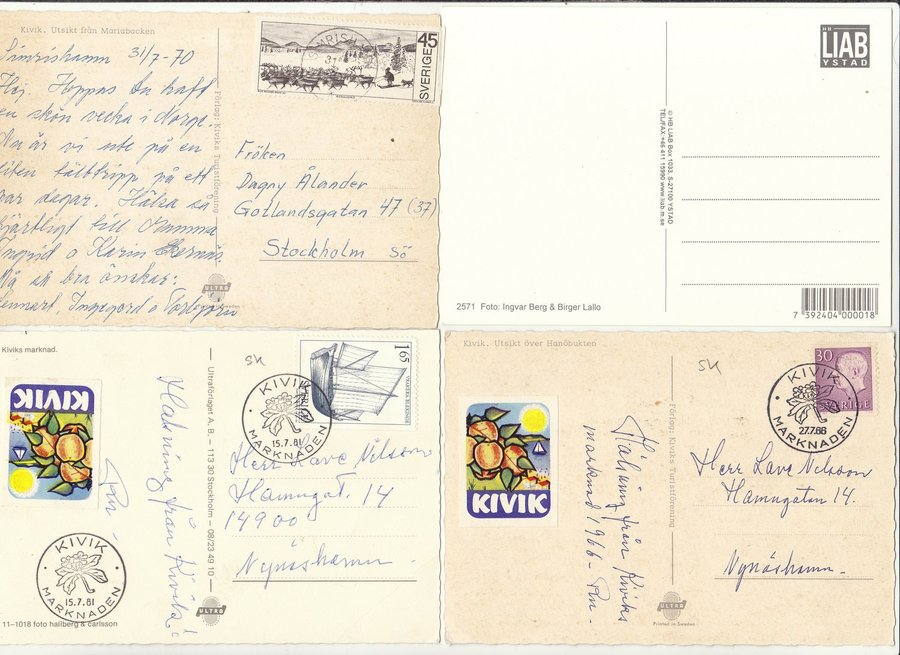 Kivik. Utsikt från Mariabacken
Simrishamn 31/7-70
Hej. Hoppas Du haft
en skön vecka i Norge.
Nu är vi ute på en
liten tälttripp på ett
par dagar. Hälsa så
hjärtligt till Mamma
Ingrid o Karin
Må så bra önskar:
Lennart, Ingegerd o Torbjörn
Förlag: Kiviks Turistförening
45
SVERIGE
Fröken
Dagny Ålander
Gotlandsgatan 47 (37)
Stockholm Sö
ULTRA
HB
LIAB
YSTAD
© HB LIAB Box 1033, S-27100 YSTAD
TEL/FAX +46 411 15990 www.liab.m.se
2571 Foto: Ingvar Berg & Birger Lallo
7 392404 000018
Kiviks marknad.
KIVIK
Hälsning från Kivik!
KIVIK
15.7.81
MARKNADEN
11-1018 foto hallberg & carlsson
Ultraförlaget A. B. – 113 30 Stockholm – 08/23 49 10
SH
165
KIVIK
15.7.81
MARKNADEN
Herr Lave Nilsson
Hamngat. 14
14900
Nynäshamn
ULTRA
Kivik. Utsikt över Hanöbukten
KIVIK
Hälsning från Kiviks
marknad 1966
Förlag: Kiviks Turistförening
SH
30
SVERIGE
KIVIK
27.7.66
MARKNADEN
Herr Lave Nilsson
Hamngatan 14.
Nynäshamn
ULTRA
Printed in Sweden